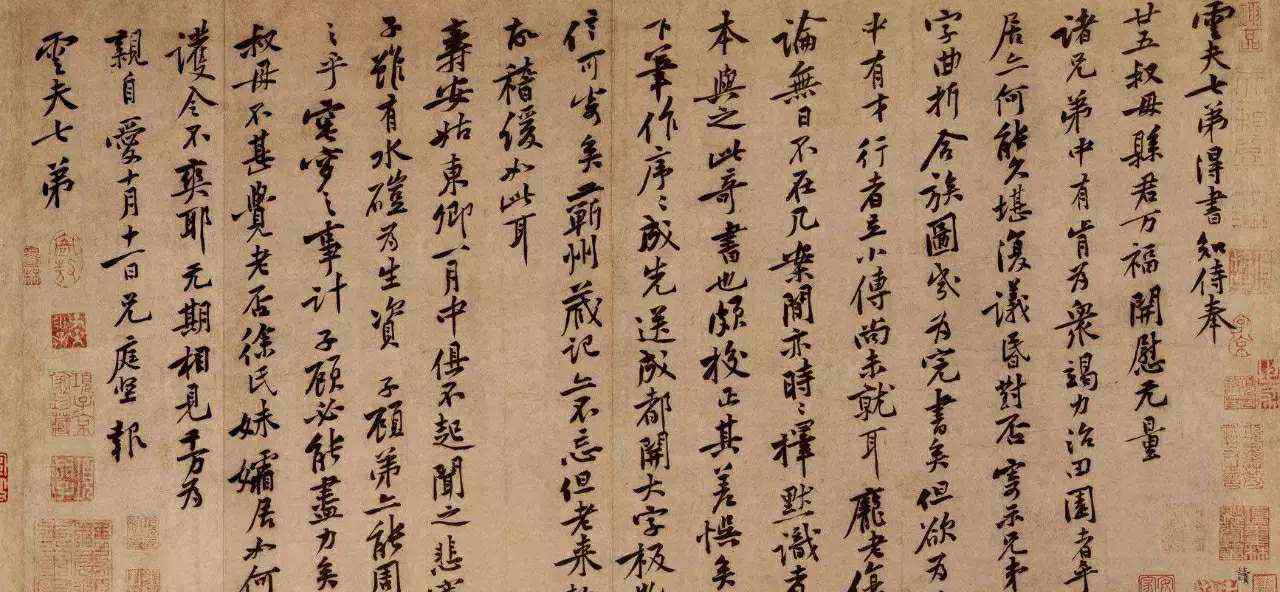 雲夫七弟得書知侍奉
廿五叔母縣君万福開慰无量
諸兄弟中有肯为衆竭力治田園者乎
居亦何能久堪復議昏對否寄示兄弟
字曲折合族圖为完書矣但欲为
中有才行者立小傳尚未就耳龐老傷
論無日不在几案間亦時〻擇默識者
本與之此奇書也頗校正其差悮矣
下筆作序〻成先送成都開大字板
信可寄矣蘄州藏記亦不忘但老来
故稽缓如此耳
壽安姑東卿一月中俱不起聞之悲
子雖有水磑为生資子顧弟亦能周
之乎窀穸之事計子顧必能盡力矣
叔母不甚覺老否徐氏妹孀居如何
護令不爽耶无期相見千万为
親自愛十月十一日兄庭坚報
雲夫七弟